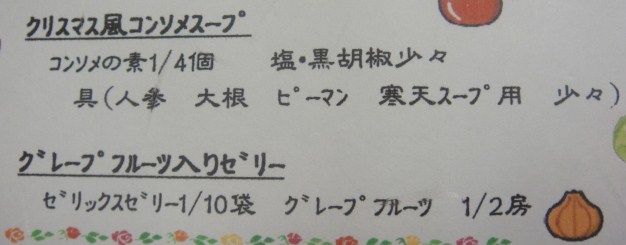 クリスマス風コンソメスープ
コンソメの素1/4個　塩・黒胡椒少々
具(人参　大根　ピーマン　寒天スープ用　少々)
グレープフルーツ入りゼリー
ゼリックスゼリー1/10袋　グレープフルーツ　1/2房